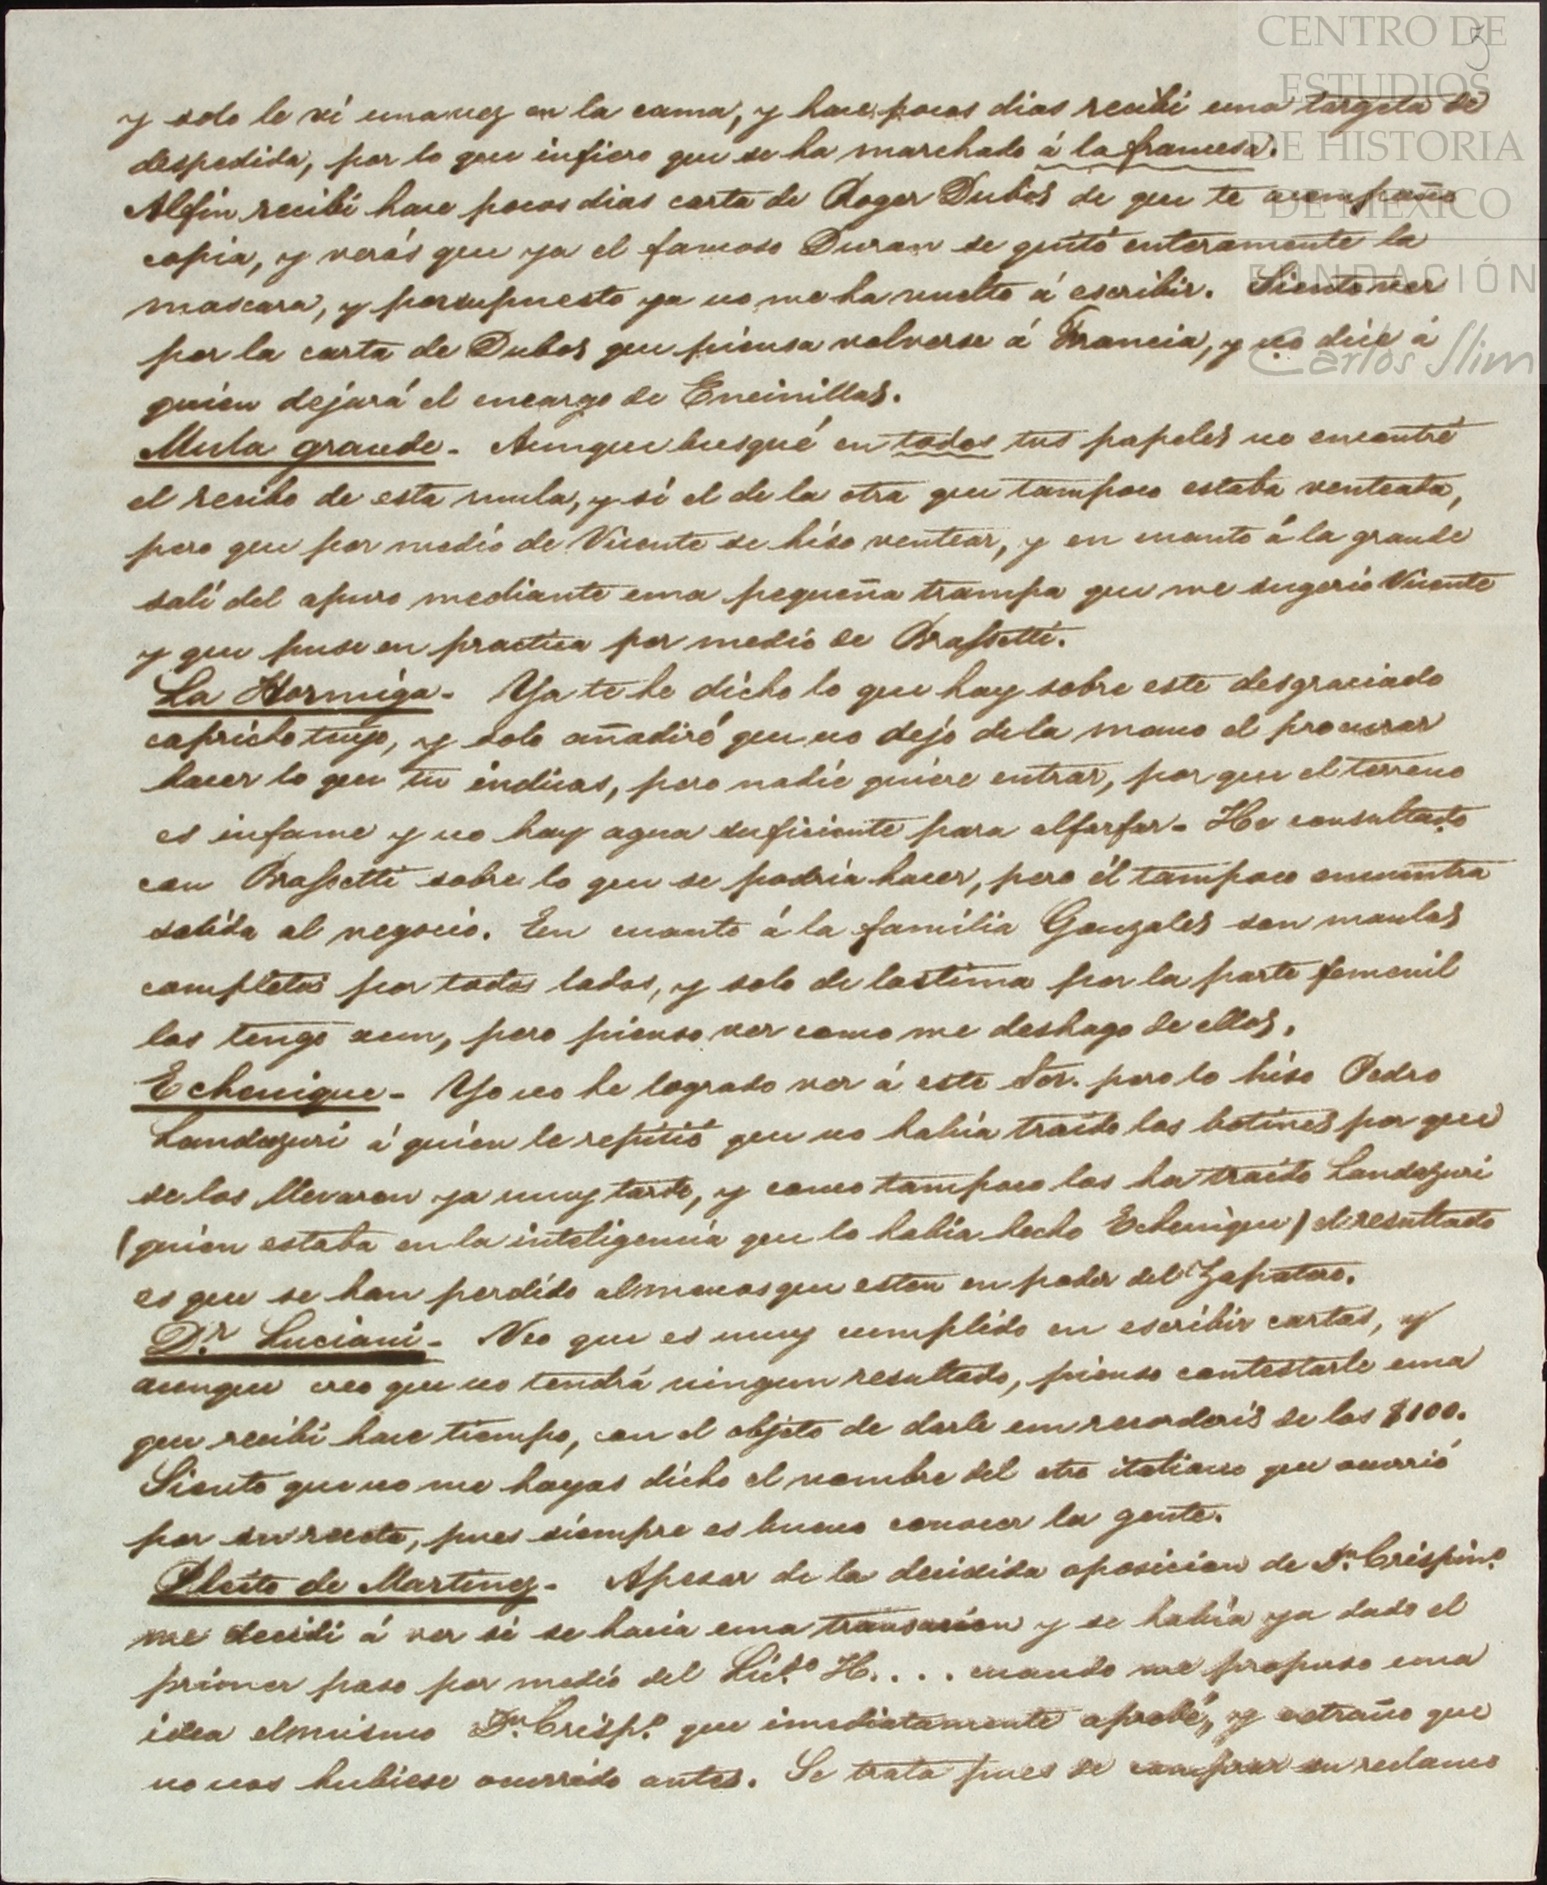 CENTRO DE
ESTUDIOS
DE HISTORIA
DE MÉXICO
FUNDACIÓN
Carlos Slim
5
y solo le ví una vez en la cama, y hace pocos dias recibí una targeta de
despedida, por lo que infiero que se ha marchado á la francesa.
Alfin recibí hace pocos dias carta de Roger Dubos de que te acompaño
copia, y verás que ya el famoso Duran se quitó enteramente la
mascara, y porsupuesto ya no me ha vuelto á escribir. Siento ver
por la carta de Dubos que piensa volverse á Francia, y no dice á
quien dejará el encargo de Encinillas.
Mula grande - Aunque busqué en todos tus papeles no encontré
el recibo de esta mula, y sí el de la otra que tampoco estaba venteada,
pero que por medio de Vicente se hiso ventear, y en cuanto á la grande
salí del apuro mediante una pequeña trampa que me sugerio Vicente
y que puse en practica por medio de Brassetti.
La Hormiga - Ya te he dicho lo que hay sobre este desgraciado
capricho tuyo, y solo añadiré que no dejo de la mano el procurar
hacer lo que tu indicas, pero nadie quiere entrar, por que el terreno
es infame y no hay agua suficiente para alfarfar - He consultado
con Brassetti sobre lo que se podria hacer, pero él tampoco encuentra
salida al negocio. En cuanto á la familia Gonzales son maulas
completos por todos lados, y solo de lastima por la parte femenil
los tengo aun, pero pienso ver como me deshago de ellos.
Echenique - Yo no he logrado ver á este Sor. pero lo hiso Pedro
Landazuri á quien le repitió que no habia traido los botines por que
se los llevaron ya muy tarde, y como tampoco los ha traido Landazuri
(quien estaba en la inteligencia que lo habia hecho Echenique) el resultado
es que se han perdido al menos que esten en poder del Zapatero.
Dr. Luciani - Veo que es muy cumplido en escribir cartas, y
aunque creo que no tendrá ningun resultado, pienso contestarle una
que recibi hace tiempo, con el objeto de darle un recorderis de los $100.
Siento que no me hayas dicho el nombre del otro italiano que ocurrió
por su receta, pues siempre es bueno conocer la gente.
Pleito de Martinez - Apesar de la decidida oposicion de Dn. Crispino.
me decidí á ver si se hacia una transacion y se habia ya dado el
primer paso por medio del Licdo. H. . . . cuando me propuso una
idea el mismo Dn. Crispo. que imediatamente aprobé, y extraño que
no nos hubiese ocurrido antes. Se trata pues de comprar su reclamo